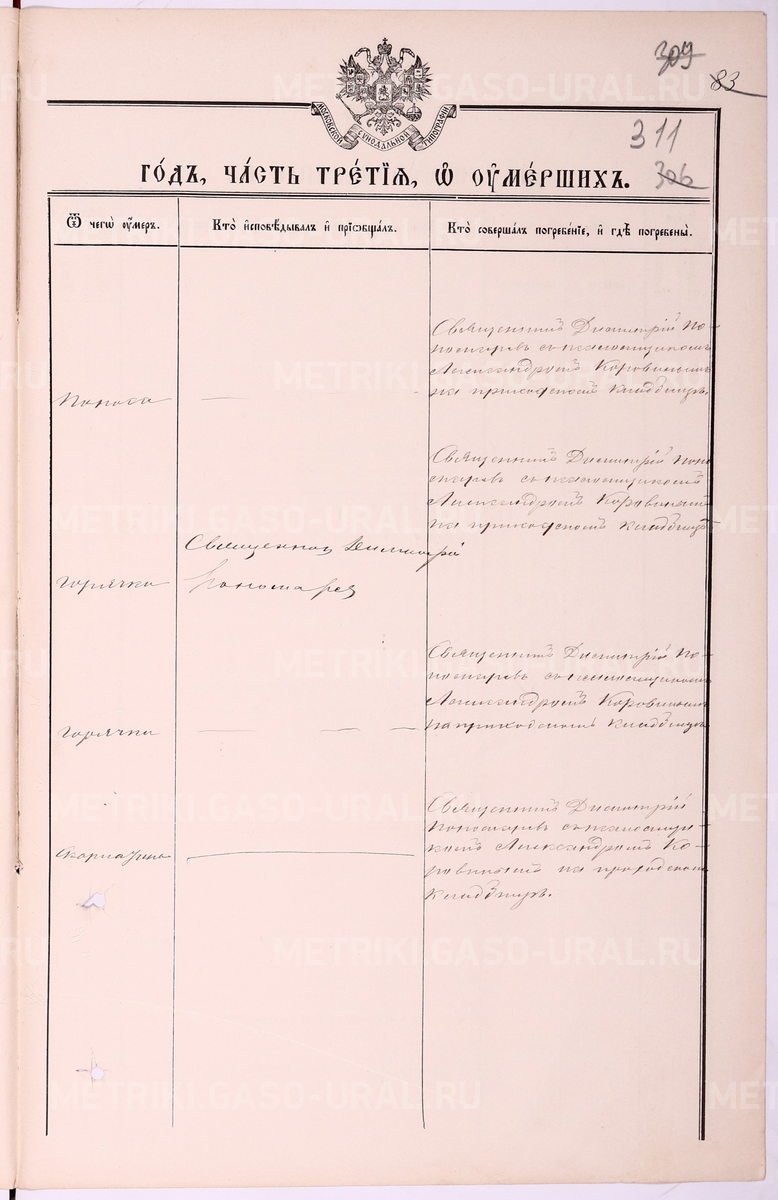 309
83
МОСКОВСКОЙ СѴНОДАЛЬНОЙ ТИПОГРАФІИ
311
306
го́дъ, ча́сть тре́тїѧ, ѽ оу҆ме́ршихъ.
Ѿ чегѡ̀ оу҆́меръ.
Кто̀ и҆сповѣ́дывалъ и҆ прїѡбща́лъ.
Кто̀ соверша́лъ погребе́нїе, и҆ гдѣ̀ погребены̀.
Священникъ Димитрій По-
номаревъ съ псаломщикомъ
Александромъ Коровинымъ
на приходскомъ кладбищѣ.
Поноса
Священникъ Димитрій Поно
маревъ съ псаломщикомъ
Александромъ Коровинымъ
на приходскомъ кладбищѣ
Священник Димитрій
Пономарев
горячки
Священникъ Димитрій По-
номаревъ съ псаломщикомъ
Александромъ Коровинымъ
на приходскомъ кладбищѣ
горячки
Священникъ Димитрій
Пономаревъ съ псаломщи-
комъ Александромъ Ко-
ровинымъ на приходском
кладбищѣ.
METRIKI.GASO-URAL.RU